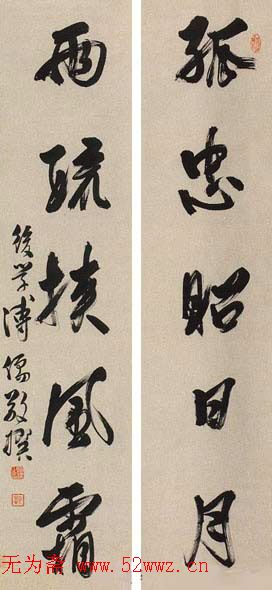 孤忠昭日月
两疏挟风霜
後学溥儒敬撰
无为斋@www.52wwz.cn